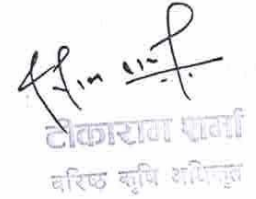 टीकाराम शर्मा
वरिष्ठ कृषि अधिकृत